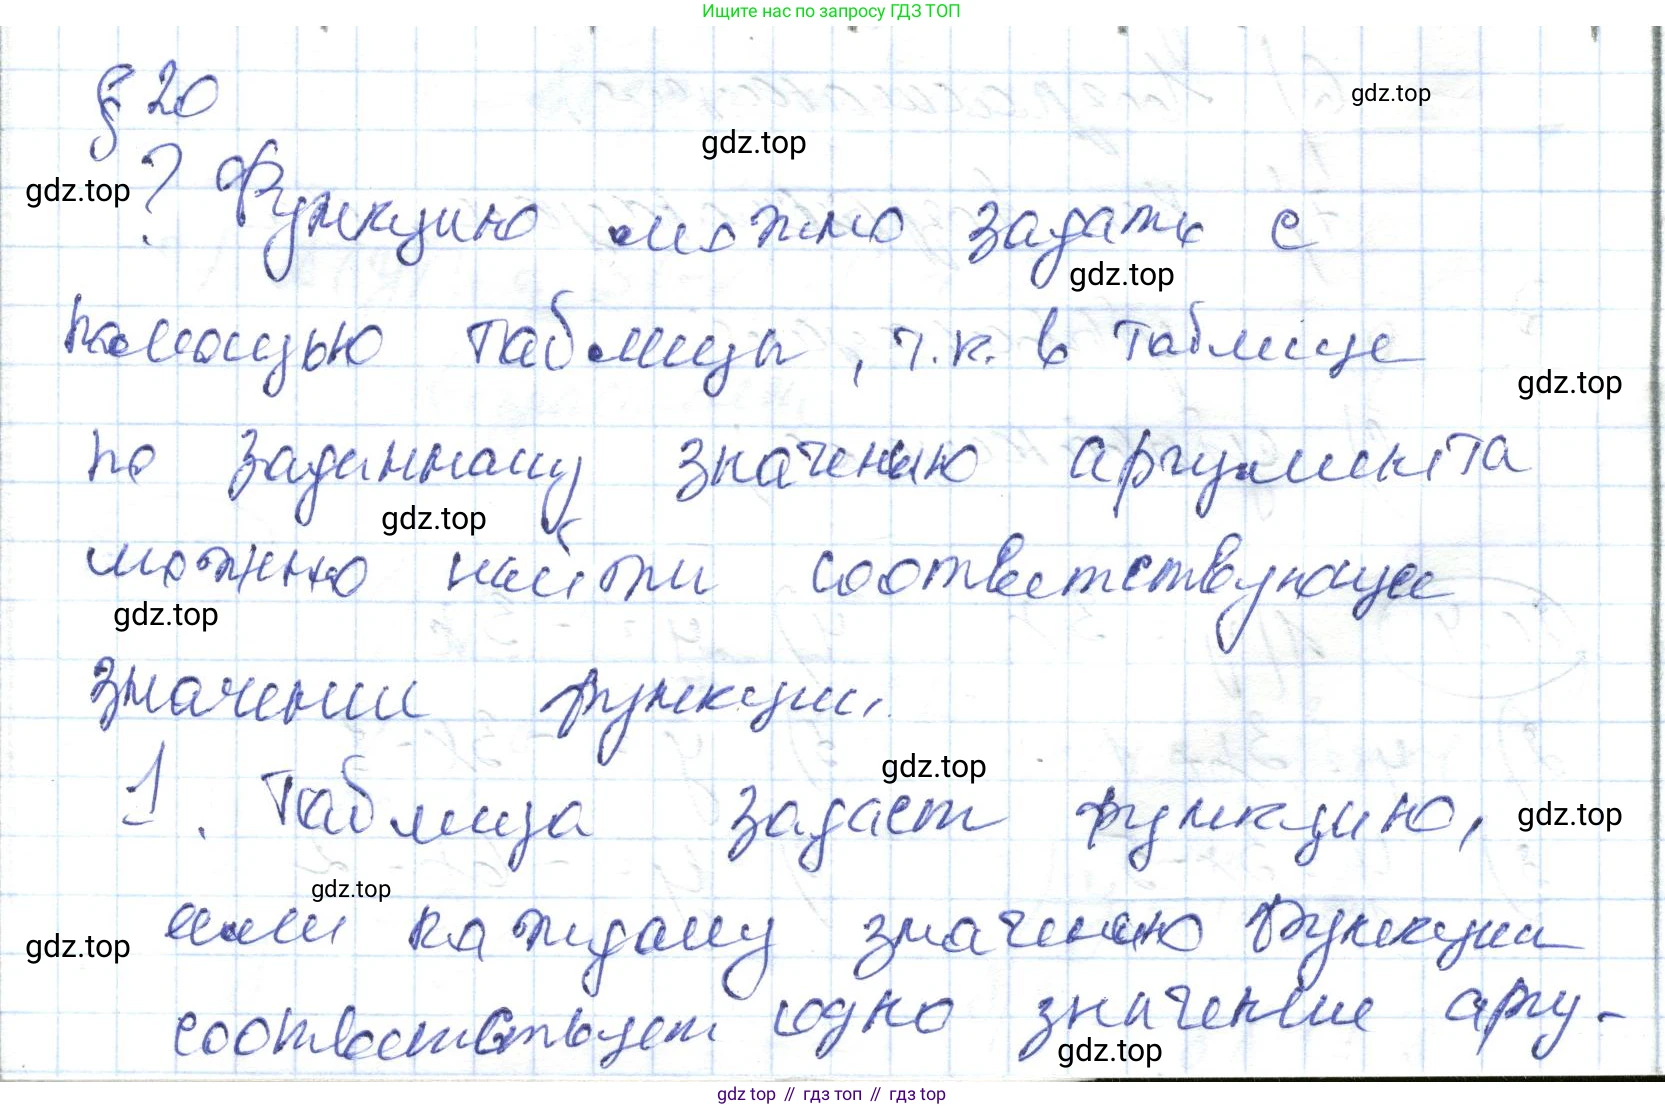 Ищите нас по запросу ГДЗ ТОП
§ 20
gdz.top
gdz.top
gdz.top
? Функцию можно задать с
gdz.top
помощью таблицы, т.к. в таблице
gdz.top
по заданному значению аргумента
gdz.top
можно найти соответствующее
gdz.top
значении функции.
gdz.top
1. Таблица задаст функцию,
gdz.top
gdz.top
если каждому значению функции
gdz.top
соответствует одно значение аргу-
gdz.top
gdz.top // гдз топ // gdz.top